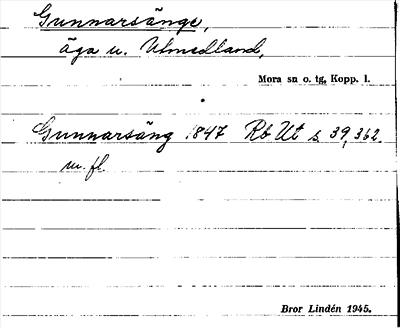 Gunnarsänge,
äga u. Utmedland,
Mora sn o. tg, Kopp. l.
Gunnarsäng 1847 Rb Ut s. 39, 362
m. fl.
Bror Lindén 1945.